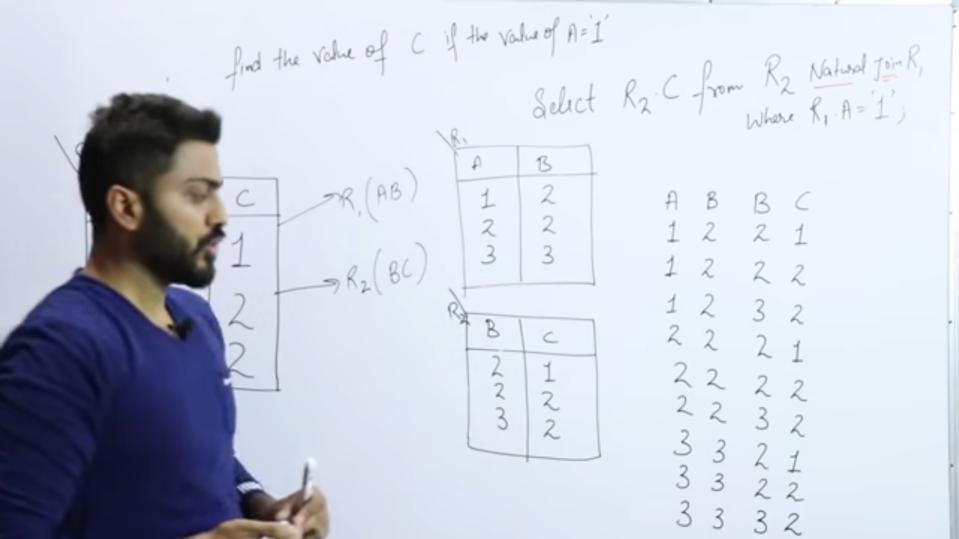 find the value of C if the value of A='1'
Select R2.C from R2 Natural Join R1
where R1.A='1';
C
1
2
2
R1(AB)
R2(BC)
R1
A B
1 2
2 2
3 3
R2
B C
2 1
2 2
3 2
A B B C
1 2 2 1
1 2 2 2
1 2 3 2
2 2 2 1
2 2 2 2
2 2 3 2
3 3 2 1
3 3 2 2
3 3 3 2